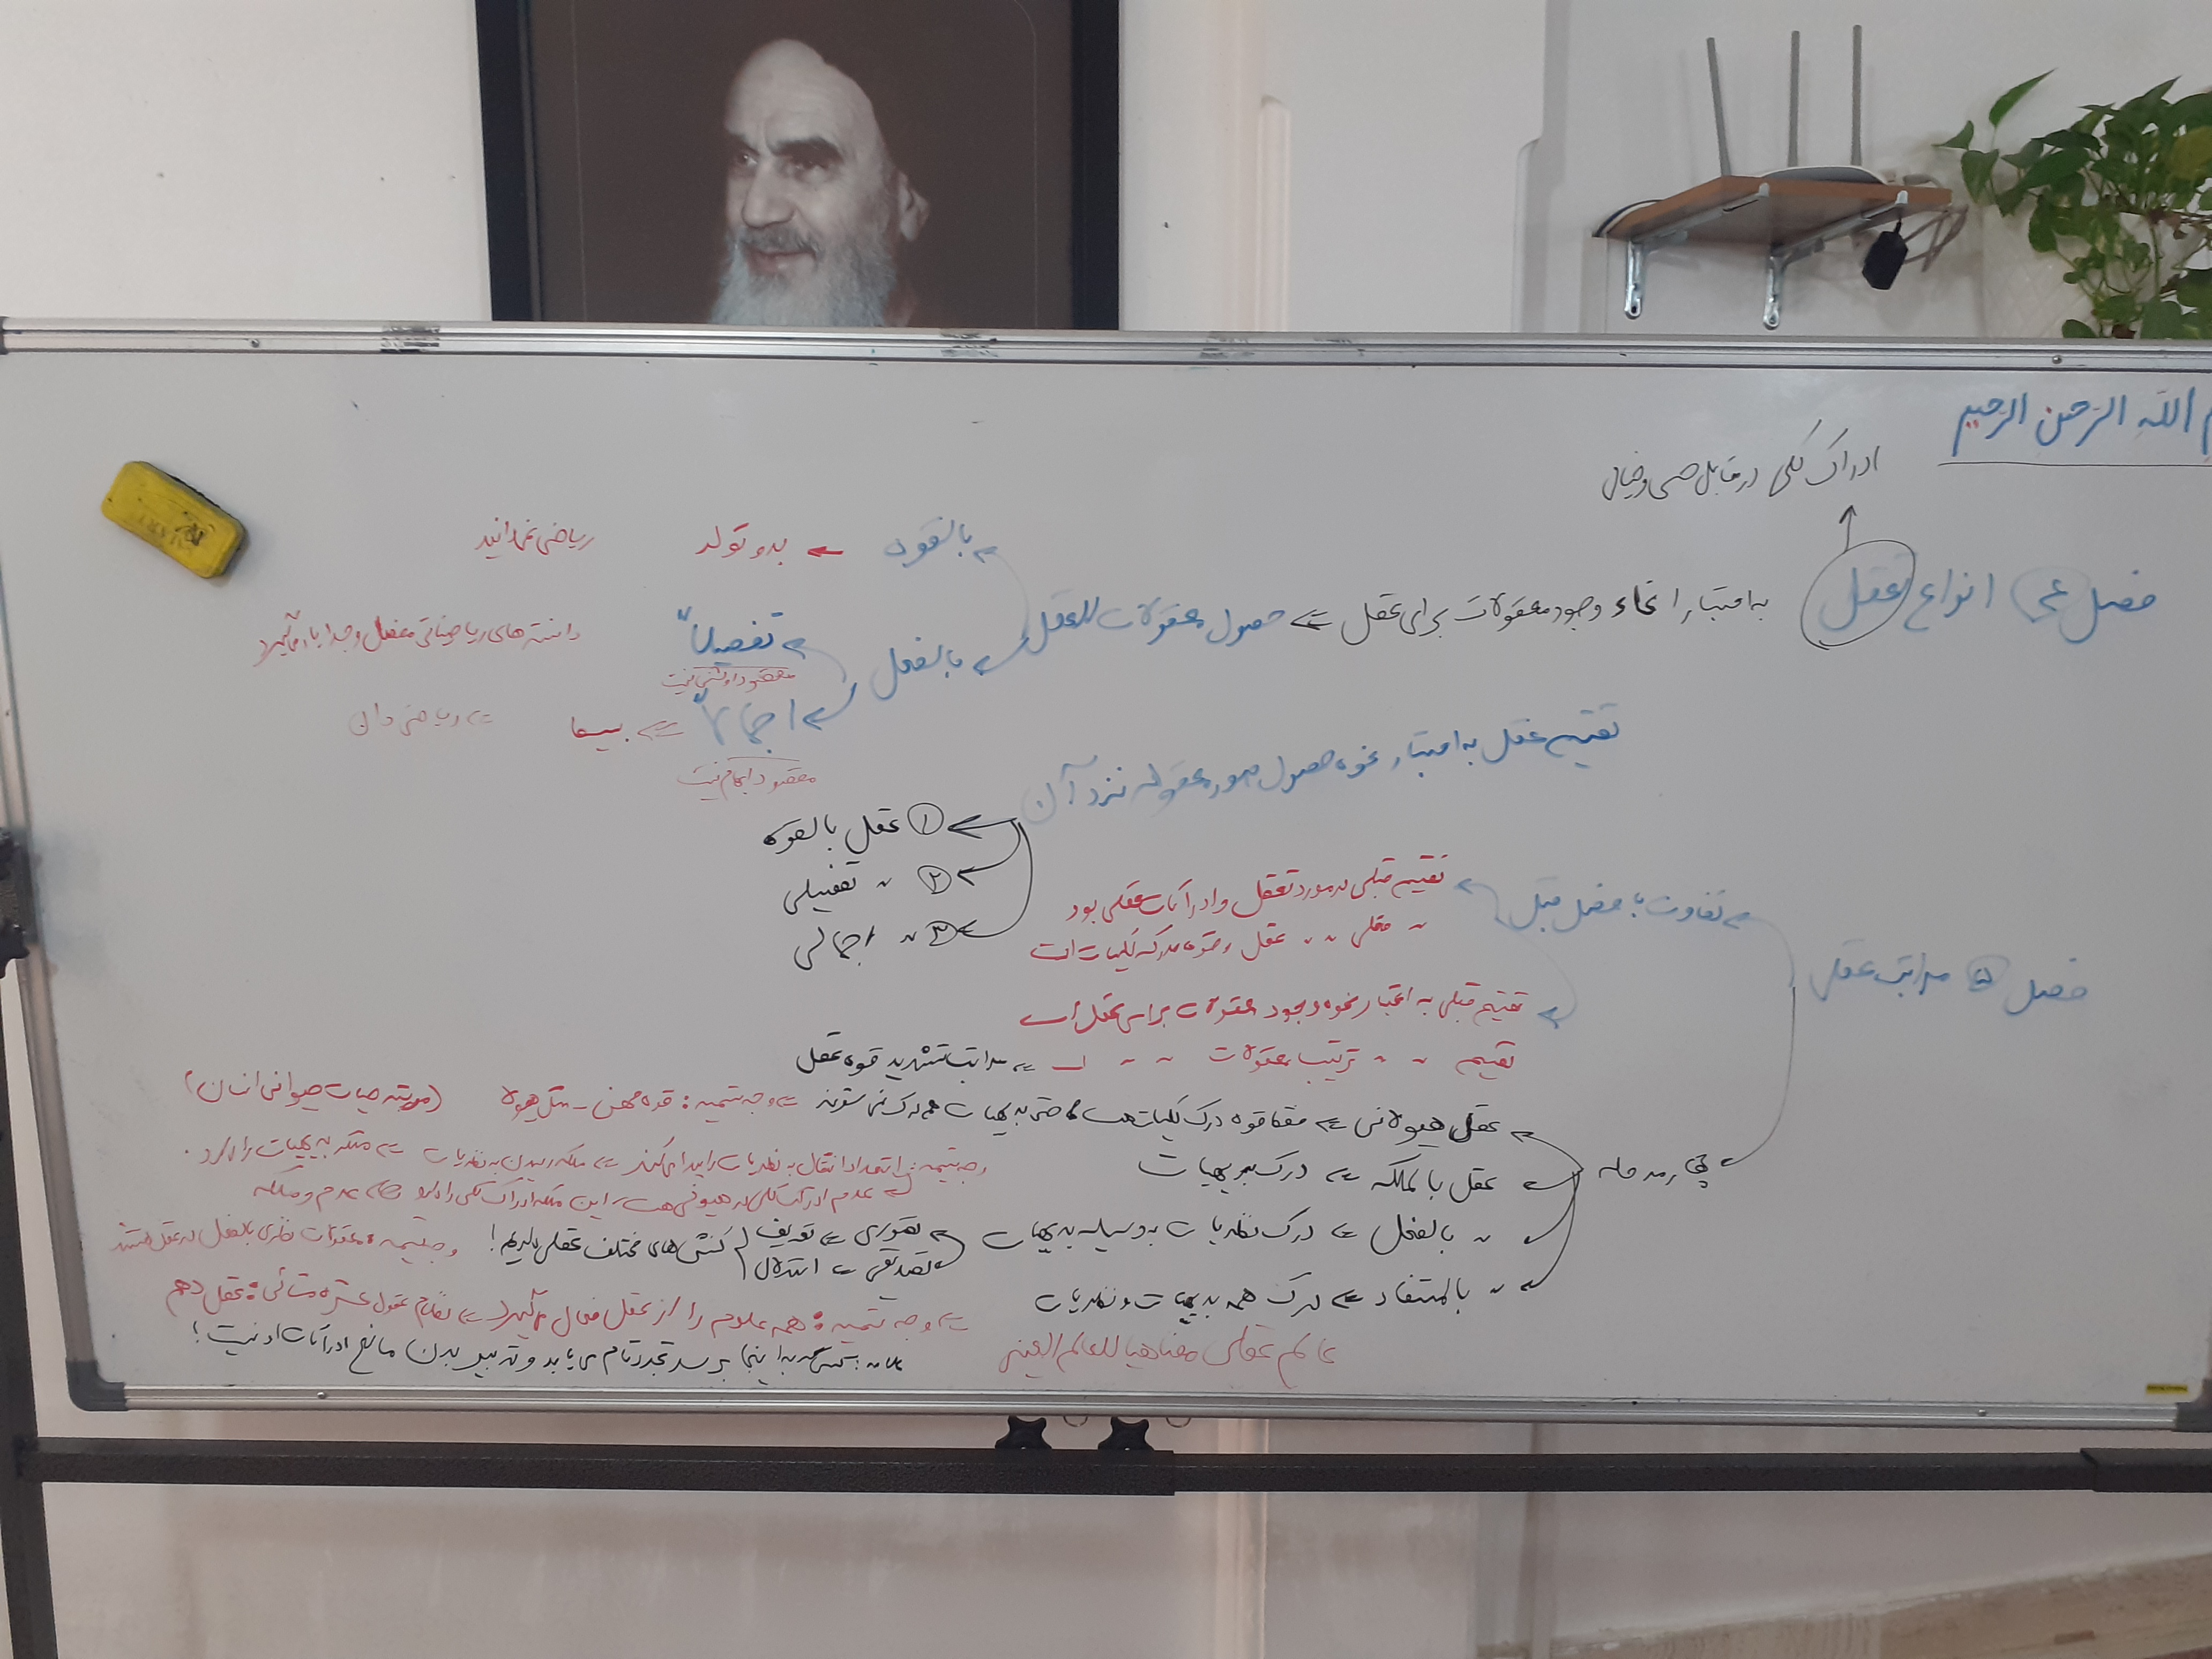 الله الرحمن الرحیم
ادراک کلی در مقابل حسی و خیالی
فصل ۴ انواع تعقل
به اعتبار انحاء وجود معقولات برای عقل ⇐ حصول معقولات للعقل
بالقوه ← بدو تولد ریاضی نمی‌دانید
بالفعل
تفصیلاً دانسته های ریاضیاتی مفصل و جدا
مقصود داشتنی نیست
اجمالاً ⇐ بسیط ⇐ ریاضی دان
مقصود ابهام نیست
تقسیم عقل به اعتبار نحوه حصول صور معقوله نزد آن
① عقل بالقوه
② ~ تفصیلی
③ ~ اجمالی
فصل ۵ مراتب عقل
تفاوت با فصل قبل
تقسیم قبلی در مورد تعقل و ادراکات عقلی بود
~ فعلی ~ ~ عقل و قوه مدرکه کلیات است
تقسیم قبلی به اعتبار نحوه وجود معقولات برای عقل است
تقسیم ~ ~ ترتیب معقولات ~ ~ است ⇐ مراتب تشدید قوه عقل
چهار مرحله
عقل هیولانی ⇐ فقط قوه درک کلیات هست، حتی بدیهیات هم درک نمی شوند ⇐ وجه تسمیه: قوه محض - مثل هیولا (مرتبه حیات حیوانی انسان)
عقل بالملکه ⇐ درک بدیهیات
وجه تسمیه: استعداد انتقال به نظریات را پیدا می‌کند ⇐ ملکه رسیدن به نظریات ⇐ ملکه بدیهیات را دارد.
عدم ادراک کلی در هیولانی هست، این ملکه ادراک کلی را دارد عدم و ملکه
~ بالفعل ⇐ درک نظریات به وسیله بدیهیات
تصوری ⇐ تعریف
تصدیقی ⇐ استدلال
کنش های مختلف عقلی داریم!
وجه تسمیه: معقولات نظری بالفعل در عقل هستند
~ بالمستفاد ⇐ درک همه بدیهیات و نظریات
⇐ وجه تسمیه: همه علوم را از عقل فعال می‌گیرد ⇐ نظام عقول عشره مشائی: عقل دهم
عالم عقلی مضاهیا للعالم العینی
کسی که به اینجا برسد تجرد تام می یابد و تدبیر بدن مانع ادراکات او نیست!